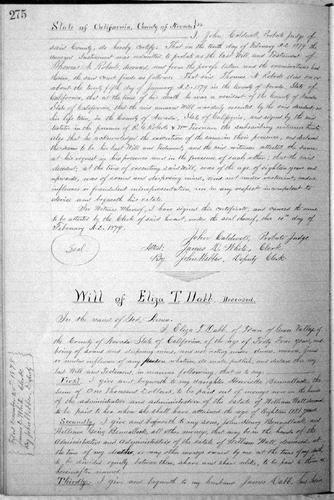 275
State of California, County of Nevada } ss
I, John Caldwell, Probate Judge of
said County, do hereby certify: That on the tenth day of February A.D. 1879 the
annexed Instrument was admitted to probate as the last Will and Testament of
Thomas A. Robert, deceased and from the proofs taken and the examination had
therein, the said Court finds as follows: That said Thomas A. Robert died on or
about the twenty fifth day of January A.D. 1879 in the County of Nevada, State of
California, that at the time of his death he was a resident of the County of Nevada
State of California, that the said annexed Will was duly executed by the said decedent in
his life time, in the County of Nevada, State of California, and signed by the said
testator in the presence of
the subscribing witnesses thereto
also that he acknowledged the execution of the same in their presence, and declared
the same to be his last Will and Testament, and the said witnesses attested the same
at his request in his presence and in the presence of each other; that the said
decedent, at the time of executing said Will, was of the age of eighteen years and
upwards, was of sound and disposing mind, and not under restraint, undue
influence or fraudulent misrepresentation, nor in any respect incompetent to
devise and bequeath his estate.
In Witness Whereof, I have signed this certificate, and caused the same
to be attested by the Clerk of said Court, under the seal thereof, this 10th day of
February A.D. 1879.
John Caldwell, Probate Judge
Seal
Attest: James D. White, Clerk
By John Webber, Deputy Clerk
Will of Eliza T. Dabb, Deceased
In the name of God, Amen.
I Eliza T. Dabb, of Town of Grass Valley of
the County of Nevada State of California, of the age of Forty Four years, and
being of sound and disposing mind, and not acting under duress, menace, fraud
or undue influence of any person whatever, do make, publish, and declare this my
last Will and Testament, in manner following, that is to say:
First: I give and bequeath to my daughter Henrietta
the
sum of One Thousand Dollars, to be paid out of moneys now in the hands
of the administrator and administratrix of the estate of William Wall deceased,
to be paid to her when she shall have attained the age of Eighteen (18) years.
Secondly: I give and bequeath to my sons, John Henry
and
William George
all other moneys that may be in the hands of the
Administrator and Administratrix of the estate of William Wall, deceased, at
the time of my death, or any other moneys owned by me at the time of my death
to be divided equally between them, share and share alike, to be paid to them as
hereinafter named.
Thirdly: I give and bequeath to my husband James Dabb,